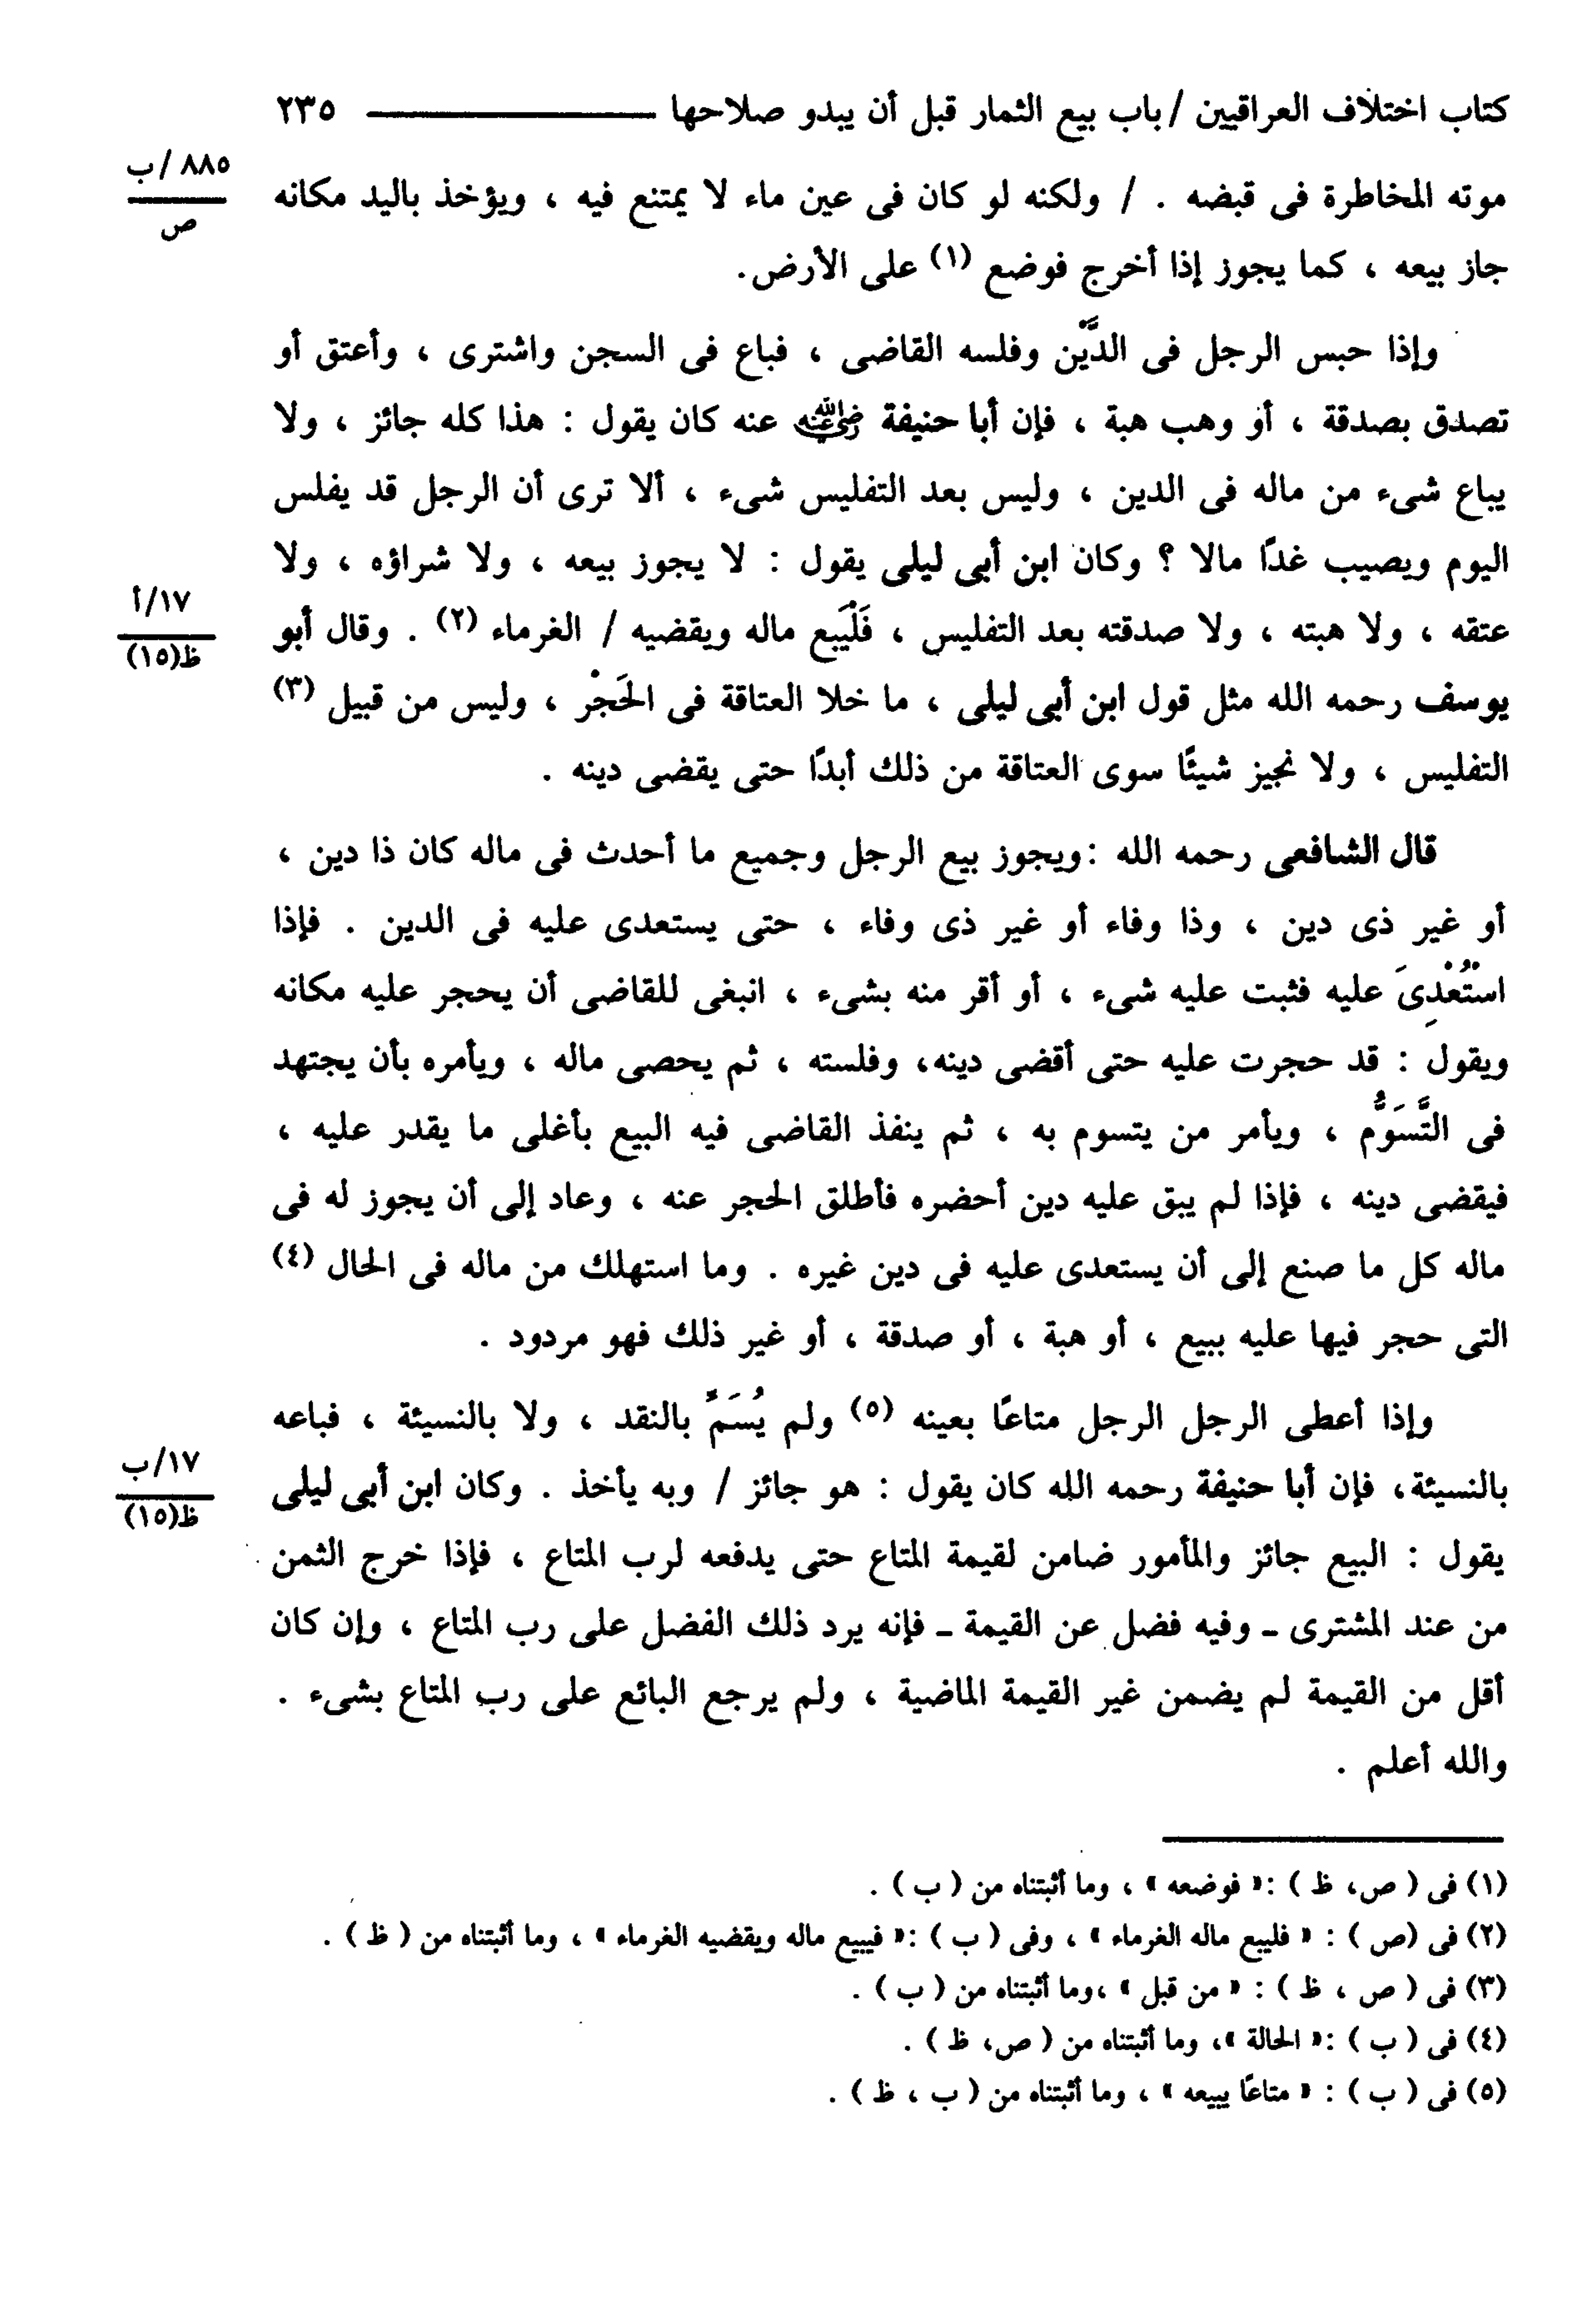 كتاب اختلاف العراقيين / باب بيع الثمار قبل أن يبدو صلاحها ــــــــــــ ٢٣٥
٨٨٥ / ب
ص
موته المخاطرة فى قبضه . / ولكنه لو كان فى عين ماء لا يمتنع فيه ، ويؤخذ باليد مكانه
جاز بيعه ، كما يجوز إذا أخرج فوضع (١) على الأرض.
وإذا حبس الرجل فى الدَّيْن وفلسه القاضى ، فباع فى السجن واشترى ، وأعتق أو
تصدق بصدقة ، أو وهب هبة ، فإن أبا حنيفة رضي الله عنه عنه كان يقول : هذا كله جائز ، ولا
يباع شىء من ماله فى الدين ، وليس بعد التفليس شىء ، ألا ترى أن الرجل قد يفلس
اليوم ويصيب غدًا مالا ؟ وكان ابن أبى ليلى يقول : لا يجوز بيعه ، ولا شراؤه ، ولا
١٧/أ
ظ(١٥)
عتقه ، ولا هبته ، ولا صدقته بعد التفليس ، فَلْيَبع ماله ويقضيه / الغرماء (٢) . وقال أبو
يوسف رحمه الله مثل قول ابن أبى ليلى ، ما خلا العتاقة فى الحَجْر ، وليس من قبيل (٣)
التفليس ، ولا نجيز شيئًا سوى العتاقة من ذلك أبدًا حتى يقضى دينه .
قال الشافعى رحمه الله :ويجوز بيع الرجل وجميع ما أحدث فى ماله كان ذا دين ،
أو غير ذى دين ، وذا وفاء أو غير ذى وفاء ، حتى يستعدى عليه فى الدين . فإذا
اسْتُعْدِىَ عليه فثبت عليه شىء ، أو أقر منه بشىء ، انبغى للقاضى أن يحجر عليه مكانه
ويقول : قد حجرت عليه حتى أقضى دينه، وفلسته ، ثم يحصى ماله ، ويأمره بأن يجتهد
فى التَّسَوُّم ، ويأمر من يتسوم به ، ثم ينفذ القاضى فيه البيع بأغلى ما يقدر عليه ،
فيقضى دينه ، فإذا لم يبق عليه دين أحضره فأطلق الحجر عنه ، وعاد إلى أن يجوز له فى
ماله كل ما صنع إلى أن يستعدى عليه فى دين غيره . وما استهلك من ماله فى الحال (٤)
التى حجر فيها عليه ببيع ، أو هبة ، أو صدقة ، أو غير ذلك فهو مردود .
وإذا أعطى الرجل الرجل متاعًا بعينه (٥) ولم يُسَمِّ بالنقد ، ولا بالنسيئة ، فباعه
١٧/ب
ظ(١٥)
بالنسيئة، فإن أبا حنيفة رحمه الله كان يقول : هو جائز / وبه يأخذ . وكان ابن أبى ليلى
يقول : البيع جائز والمأمور ضامن لقيمة المتاع حتى يدفعه لرب المتاع ، فإذا خرج الثمن
من عند المشترى ـ وفيه فضل عن القيمة ـ فإنه يرد ذلك الفضل على رب المتاع ، وإن كان
أقل من القيمة لم يضمن غير القيمة الماضية ، ولم يرجع البائع على رب المتاع بشىء .
والله أعلم .
(١) فى ( ص، ظ ) :« فوضعه » ، وما أثبتناه من ( ب ) .
(٢) فى (ص ) : « فليبع ماله الغرماء » ، وفى ( ب ) :« فيبيع ماله ويقضيه الغرماء » ، وما أثبتناه من ( ظ ) .
(٣) فى ( ص ، ظ ) : « من قبل » ،وما أثبتناه من ( ب ) .
(٤) فى ( ب ) :« الحالة »، وما أثبتناه من ( ص، ظ ) .
(٥) فى ( ب ) : « متاعًا يبيعه » ، وما أثبتناه من ( ب ، ظ ) .